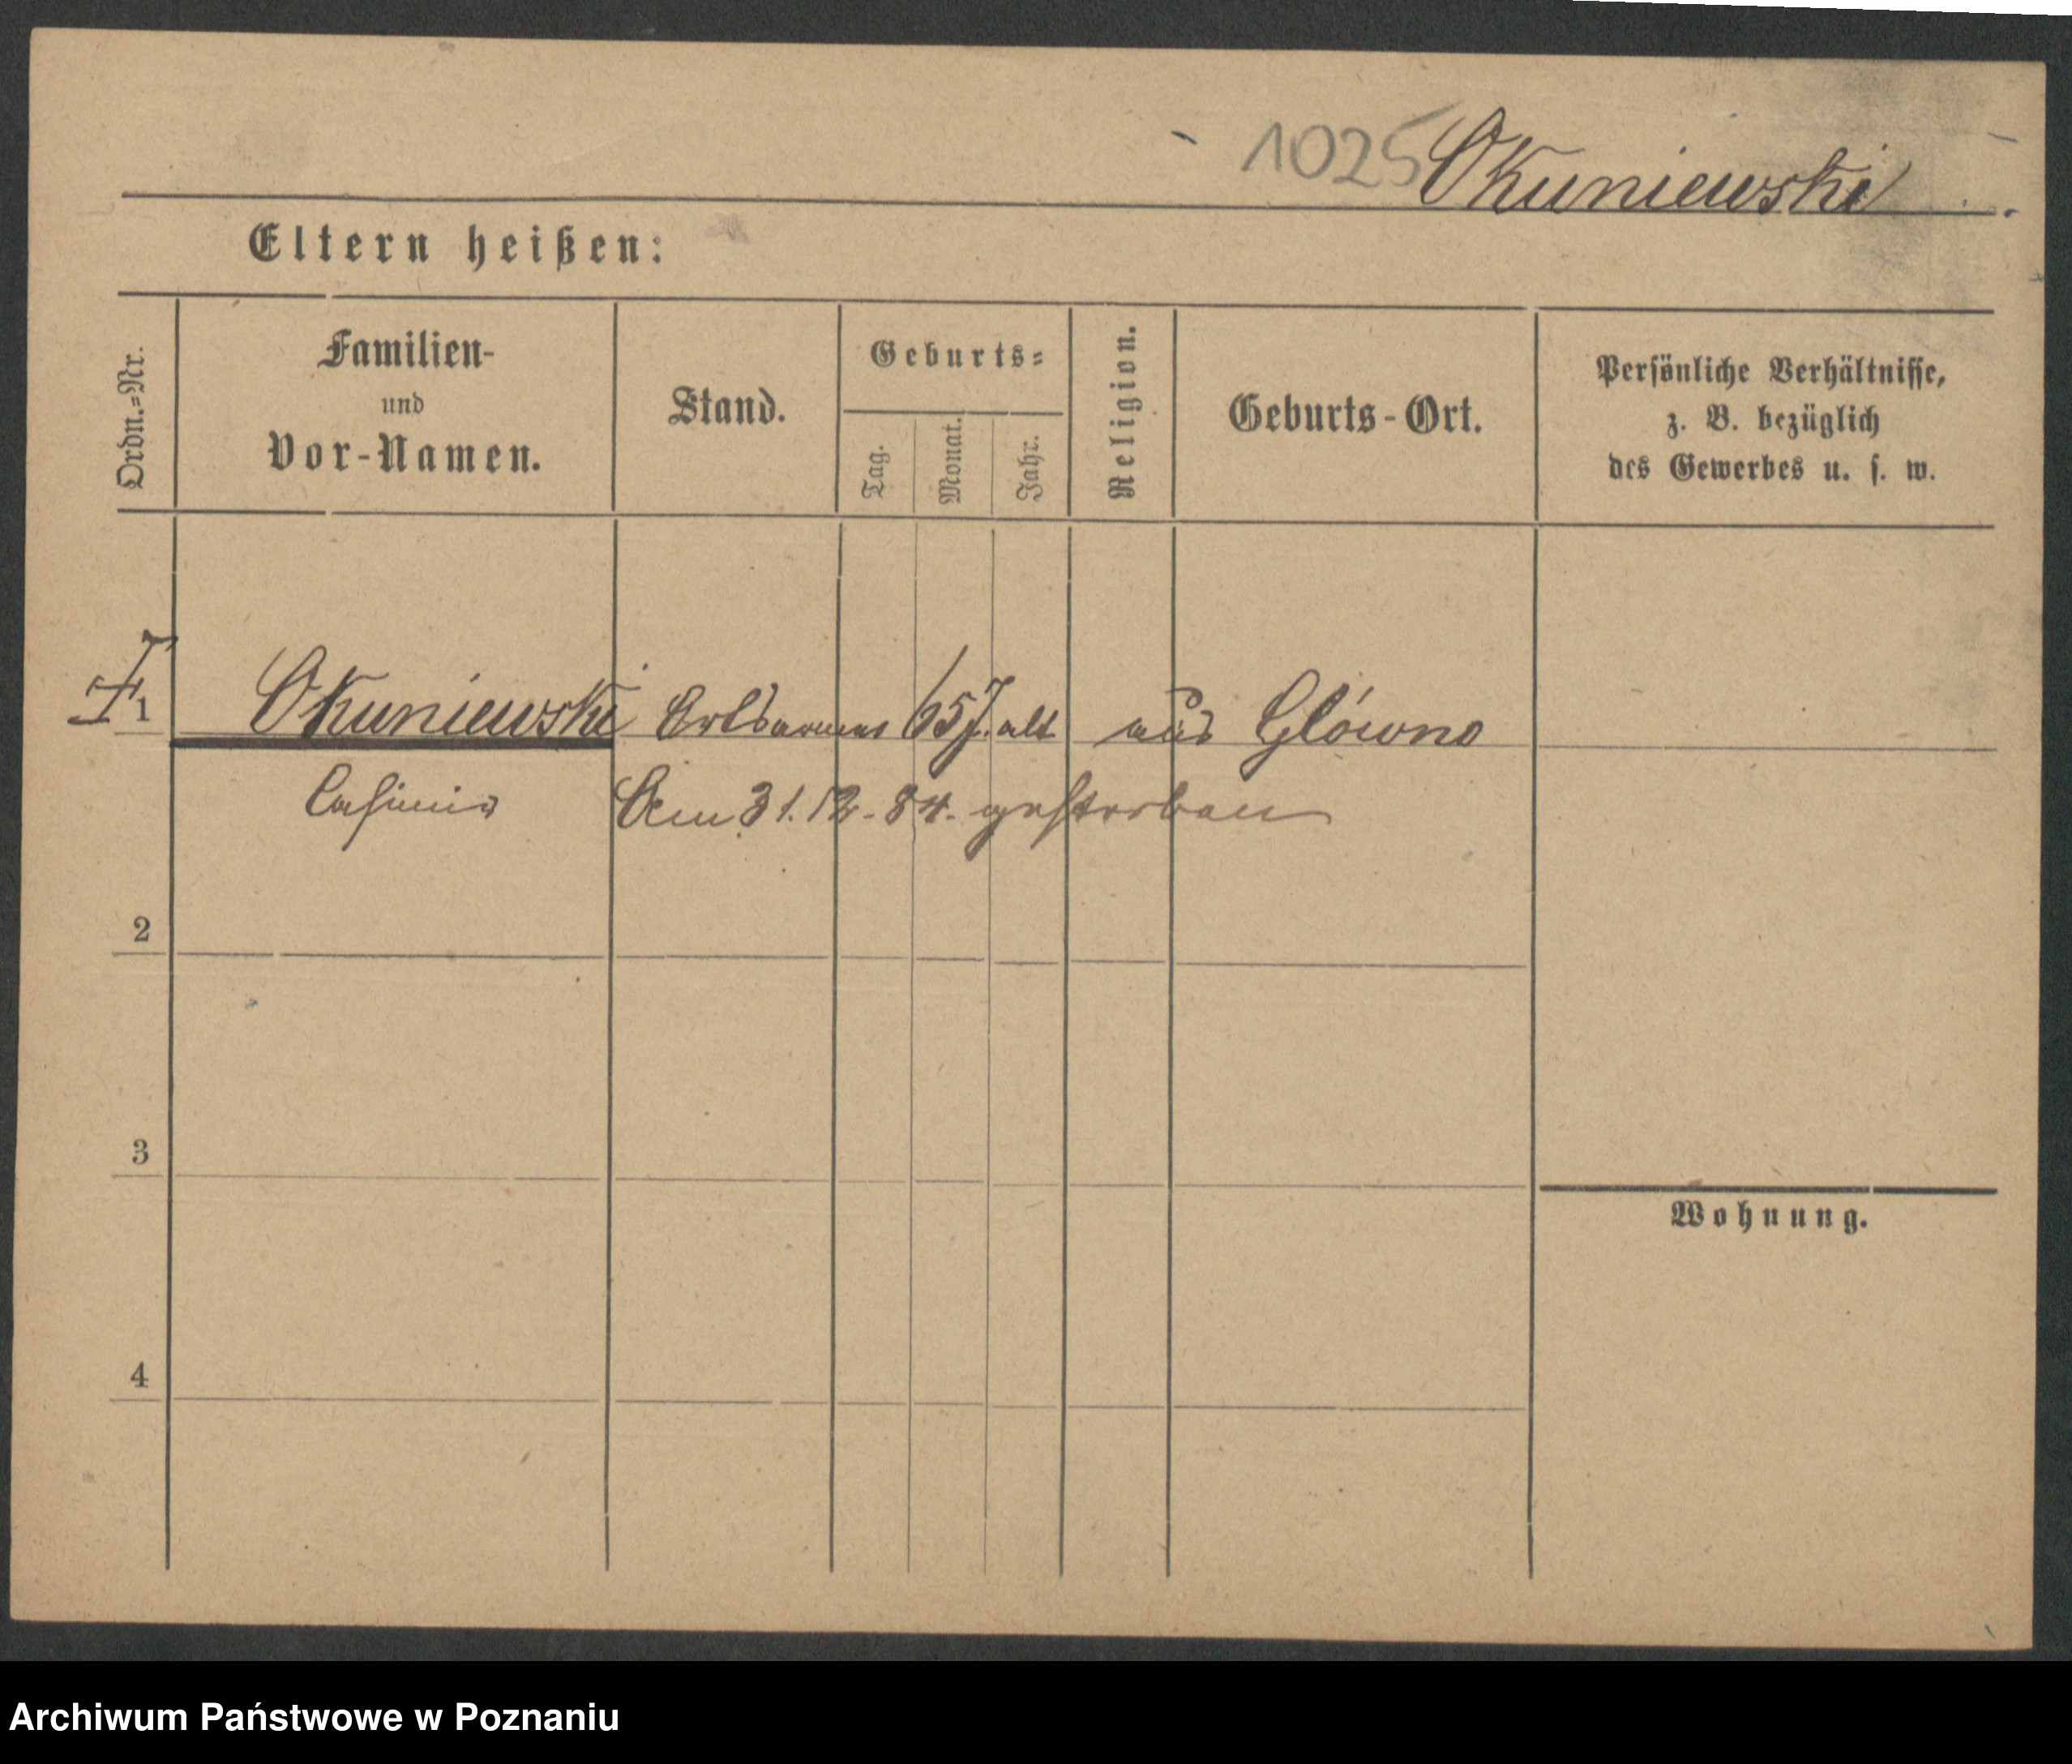 1025 Okuniewski
Eltern heißen:
Ordn.=Nr.
Familien-
und
Vor-Namen.
Stand.
Geburts=
Tag.
Monat.
Jahr.
Religion.
Geburts-Ort.
Persönliche Verhältnisse,
z. B. bezüglich
des Gewerbes u. s. w.
1 Okuniewski Ortsarmer 65 J. alt aus Glówno
Casimir Am 31.12.84. gestorben
2
3
Wohnung.
4
Archiwum Państwowe w Poznaniu